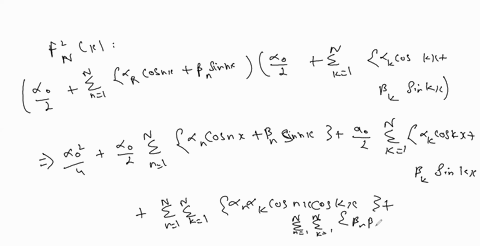 F_N^2 (x) :
(α_0/2 + Σ_{n=1}^{N} {α_n cos nx + β_n sin nx}) (α_0/2 + Σ_{k=1}^{N} {α_k cos kx +
β_k sin kx)
⇒ α_0^2/4 + α_0/2 Σ_{n=1}^{N} {α_n cos nx + β_n sin nx} + α_0/2 Σ_{k=1}^{N} {α_k cos kx +
β_k sin kx
+ Σ_{n=1}^{N} Σ_{k=1}^{N} {α_n α_k cos nx cos kx } +
Σ_{n=1}^{N} Σ_{k=1}^{N} {β_n β